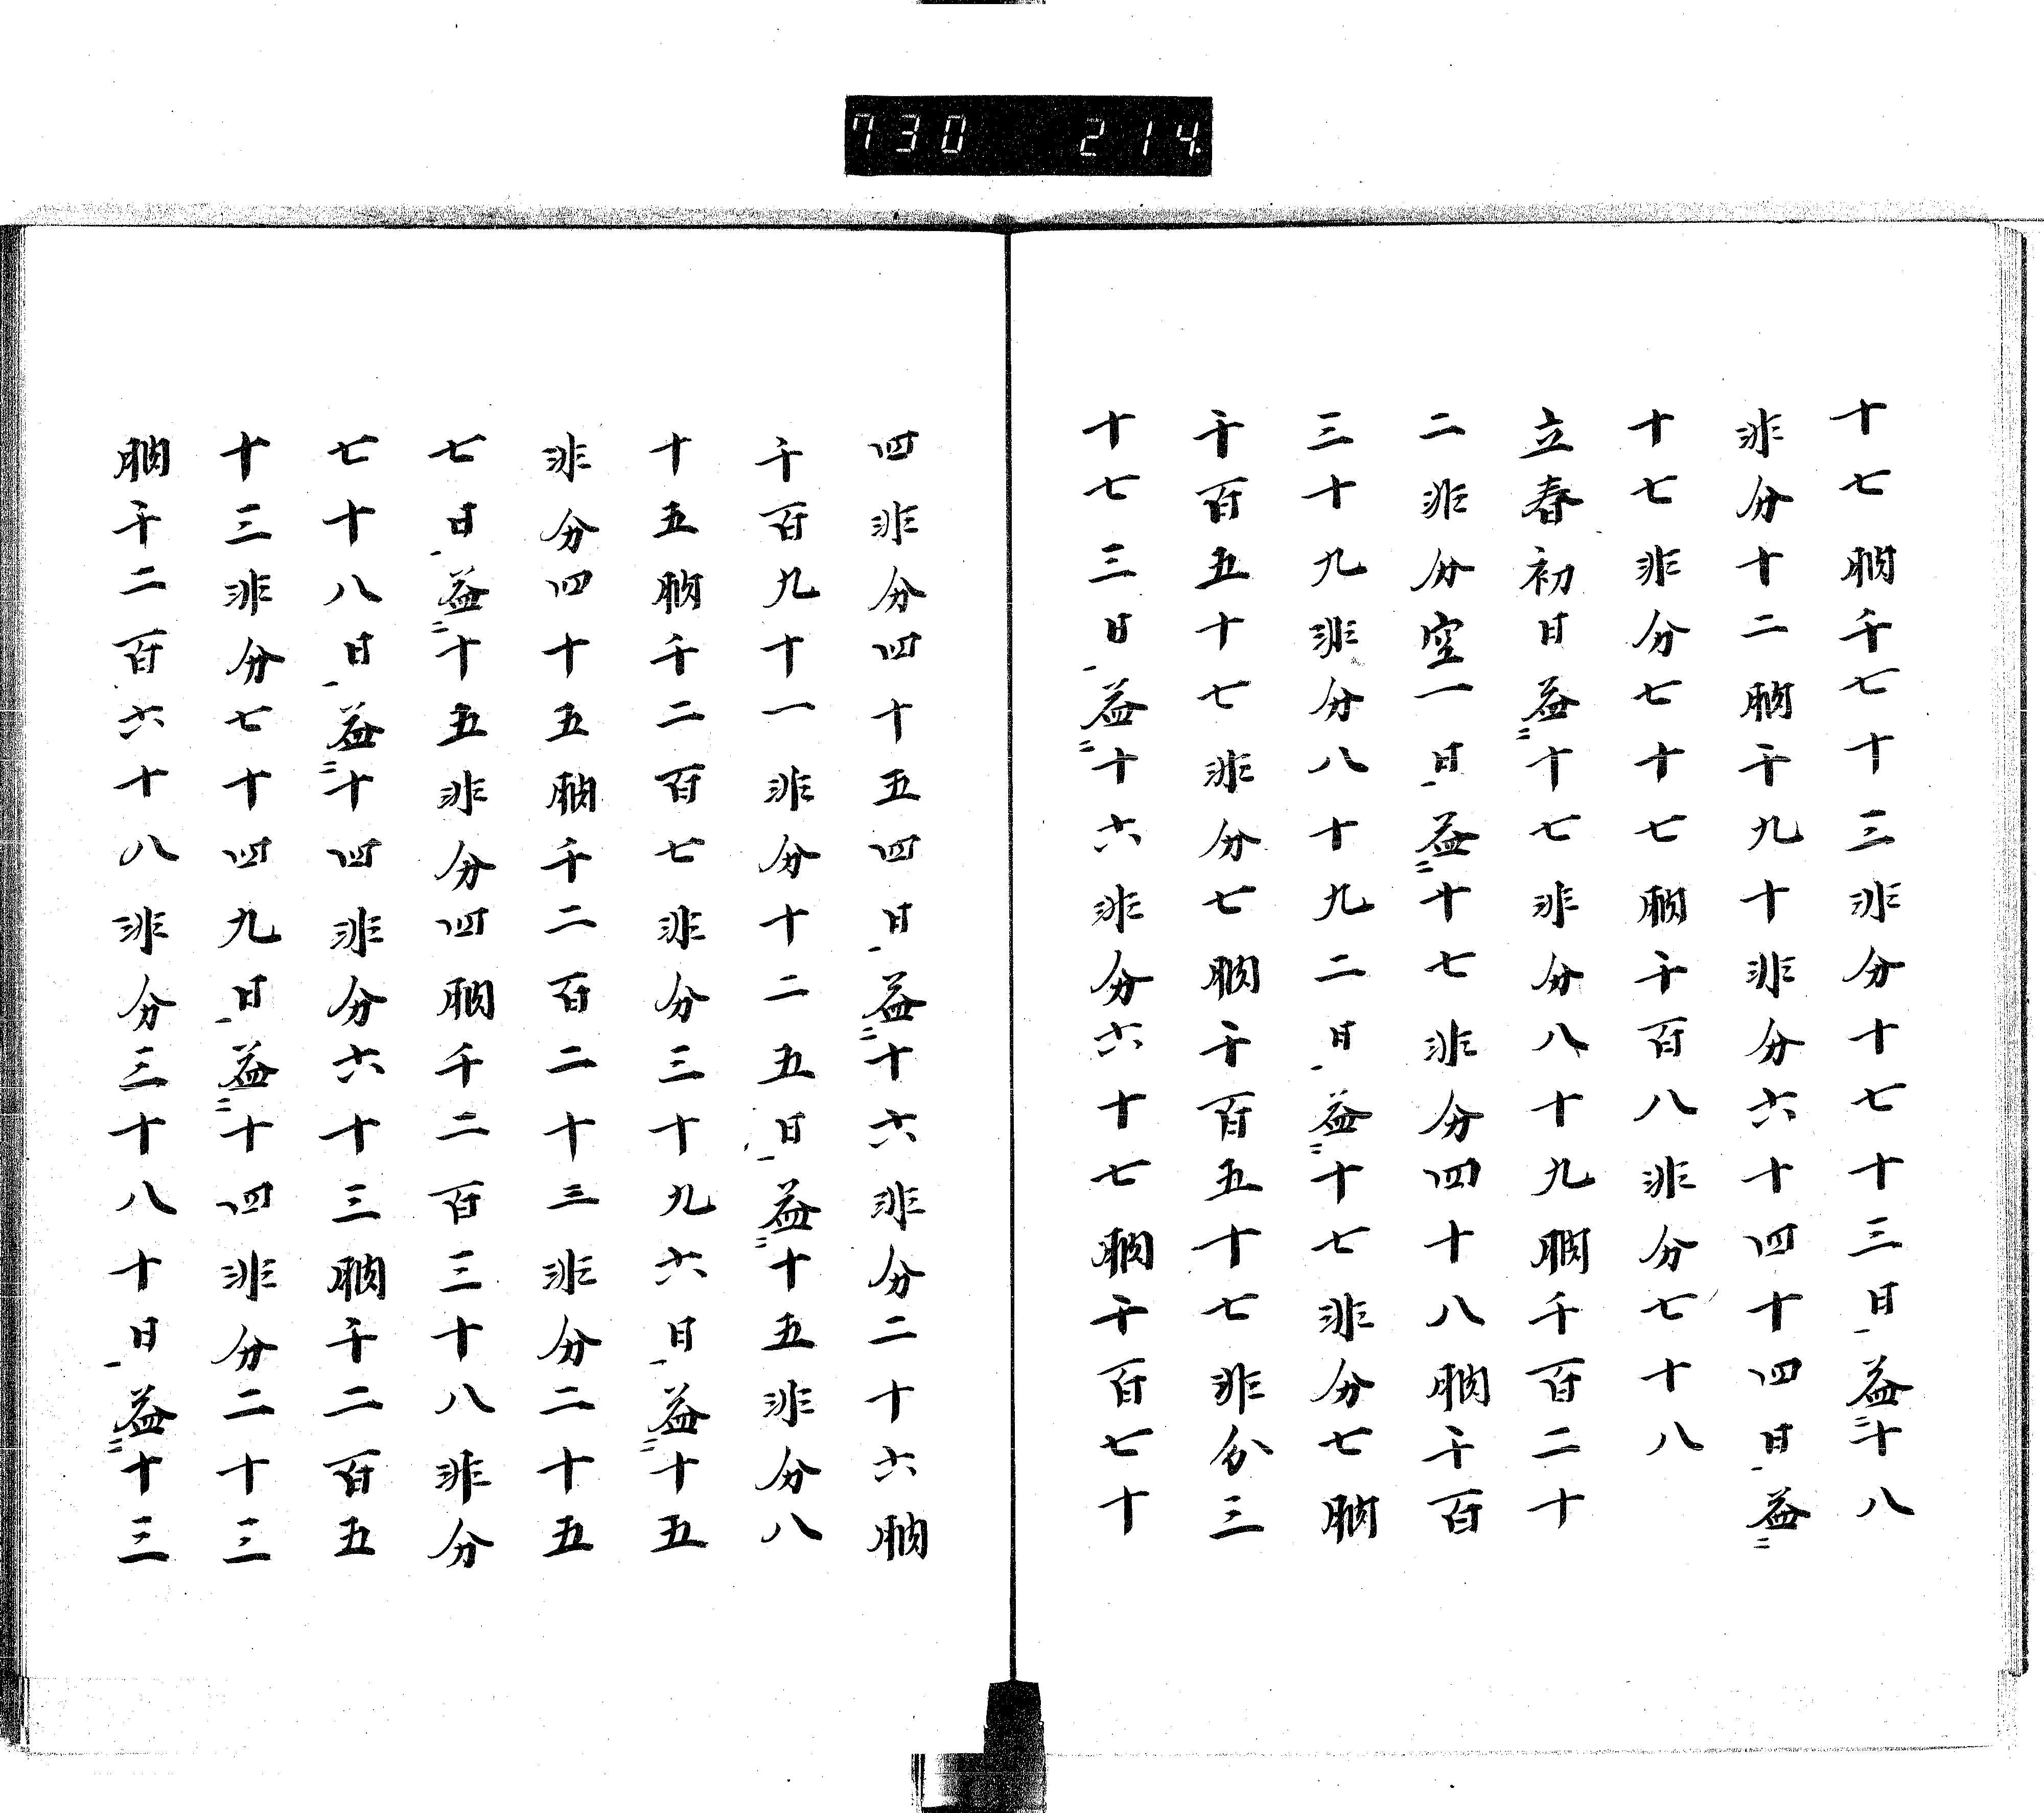 730 214
十七朒千七十三非分十七十三日益十八
非分十二朒千九十非分六十四十四日益
十七非分七十七朒千百八非分七十八
立春初日益十七非分八十九朒千百二十
二非分空一日益十七非分四十八朒千百
三十九非分八十九二日益十七非分七朒
千百五十七非分七朒千百五十七非分三
十七三日益十六非分六十七朒千百七十
四非分四十五四日益十六非分二十六朒
千百九十一非分十二五日益十五非分八
十五朒千二百七非分三十九六日益十五
非分四十五朒千二百二十三非分二十五
七日益十五非分四朒千二百三十八非分
七十八日益十四非分六十三朒千二百五
十三非分七十四九日益十四非分二十三
朒千二百六十八非分三十八十日益十三